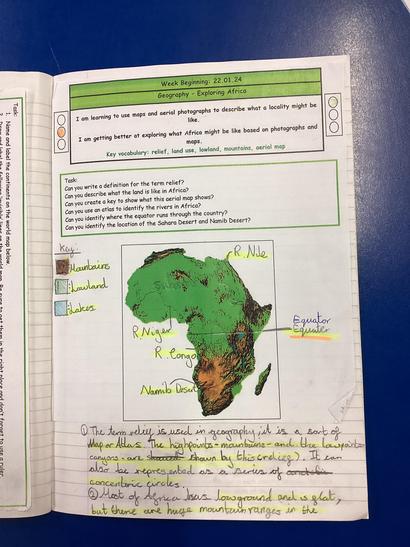 Week Beginning: 22.01.24
Geography - Exploring Africa
I am learning to use maps and aerial photographs to describe what a locality might be
like.
I am getting better at exploring what Africa might be like based on photographs and
maps.
Key vocabulary: relief, land use, lowland, mountains, aerial map
Task:
Can you write a definition for the term relief?
Can you describe what the land is like in Africa?
Can you create a key to show what this aerial map shows?
Can you use an atlas to identify the rivers in Africa?
Can you identify where the equator runs through the country?
Can you identify the location of the Sahara Desert and Namib Desert?
Key:
Mountains
Lowland
Lakes
R. Nile
R. Niger
R. Congo
Namib Desert
Equator
Equater
① The term relief is used in geography, it is a sort of
Map or Atlas. The highpoints - mountains - and the lowpoints
canyons - are shown by this (redieg). It can
also be represented as a series of
concentric circles.
② Most of Africa has lowground and is flat,
but there are huge mountain ranges in the
Task:
1. Name and label the continents on the world map below.